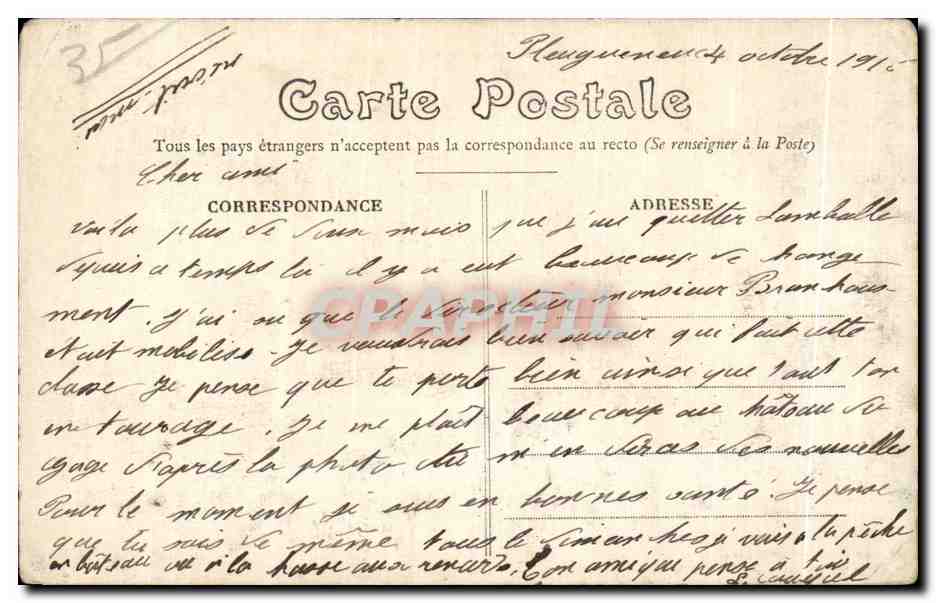 35
Pleugueneuc 4 octobre 191
Carte Postale
Tous les pays étrangers n'acceptent pas la correspondance au recto (Se renseigner à la Poste)
Cher ami
CORRESPONDANCE
ADRESSE
voila plus de deux mois que j'ai quetter Lamballe
depuis ce temps là il y a eut beaucoup de change
ment. J'ai su que le directeur monsieur
etait mobilise. Je voudrais bien savoir qui fait cette
classe Je pense que te porte bien ainsi que tout ton
entourage. Je me plaît beaucoup au hâteau de
gage d'après la photo tu m'en diras des nouvelles
Pour le moment je suis en bonnes santé. Je pense
que tu sois de même tous le dimanches j'vais a la pêche
en bateau ou a la hasse aux renards. Ton ami que pense a toi
CPAPHIL